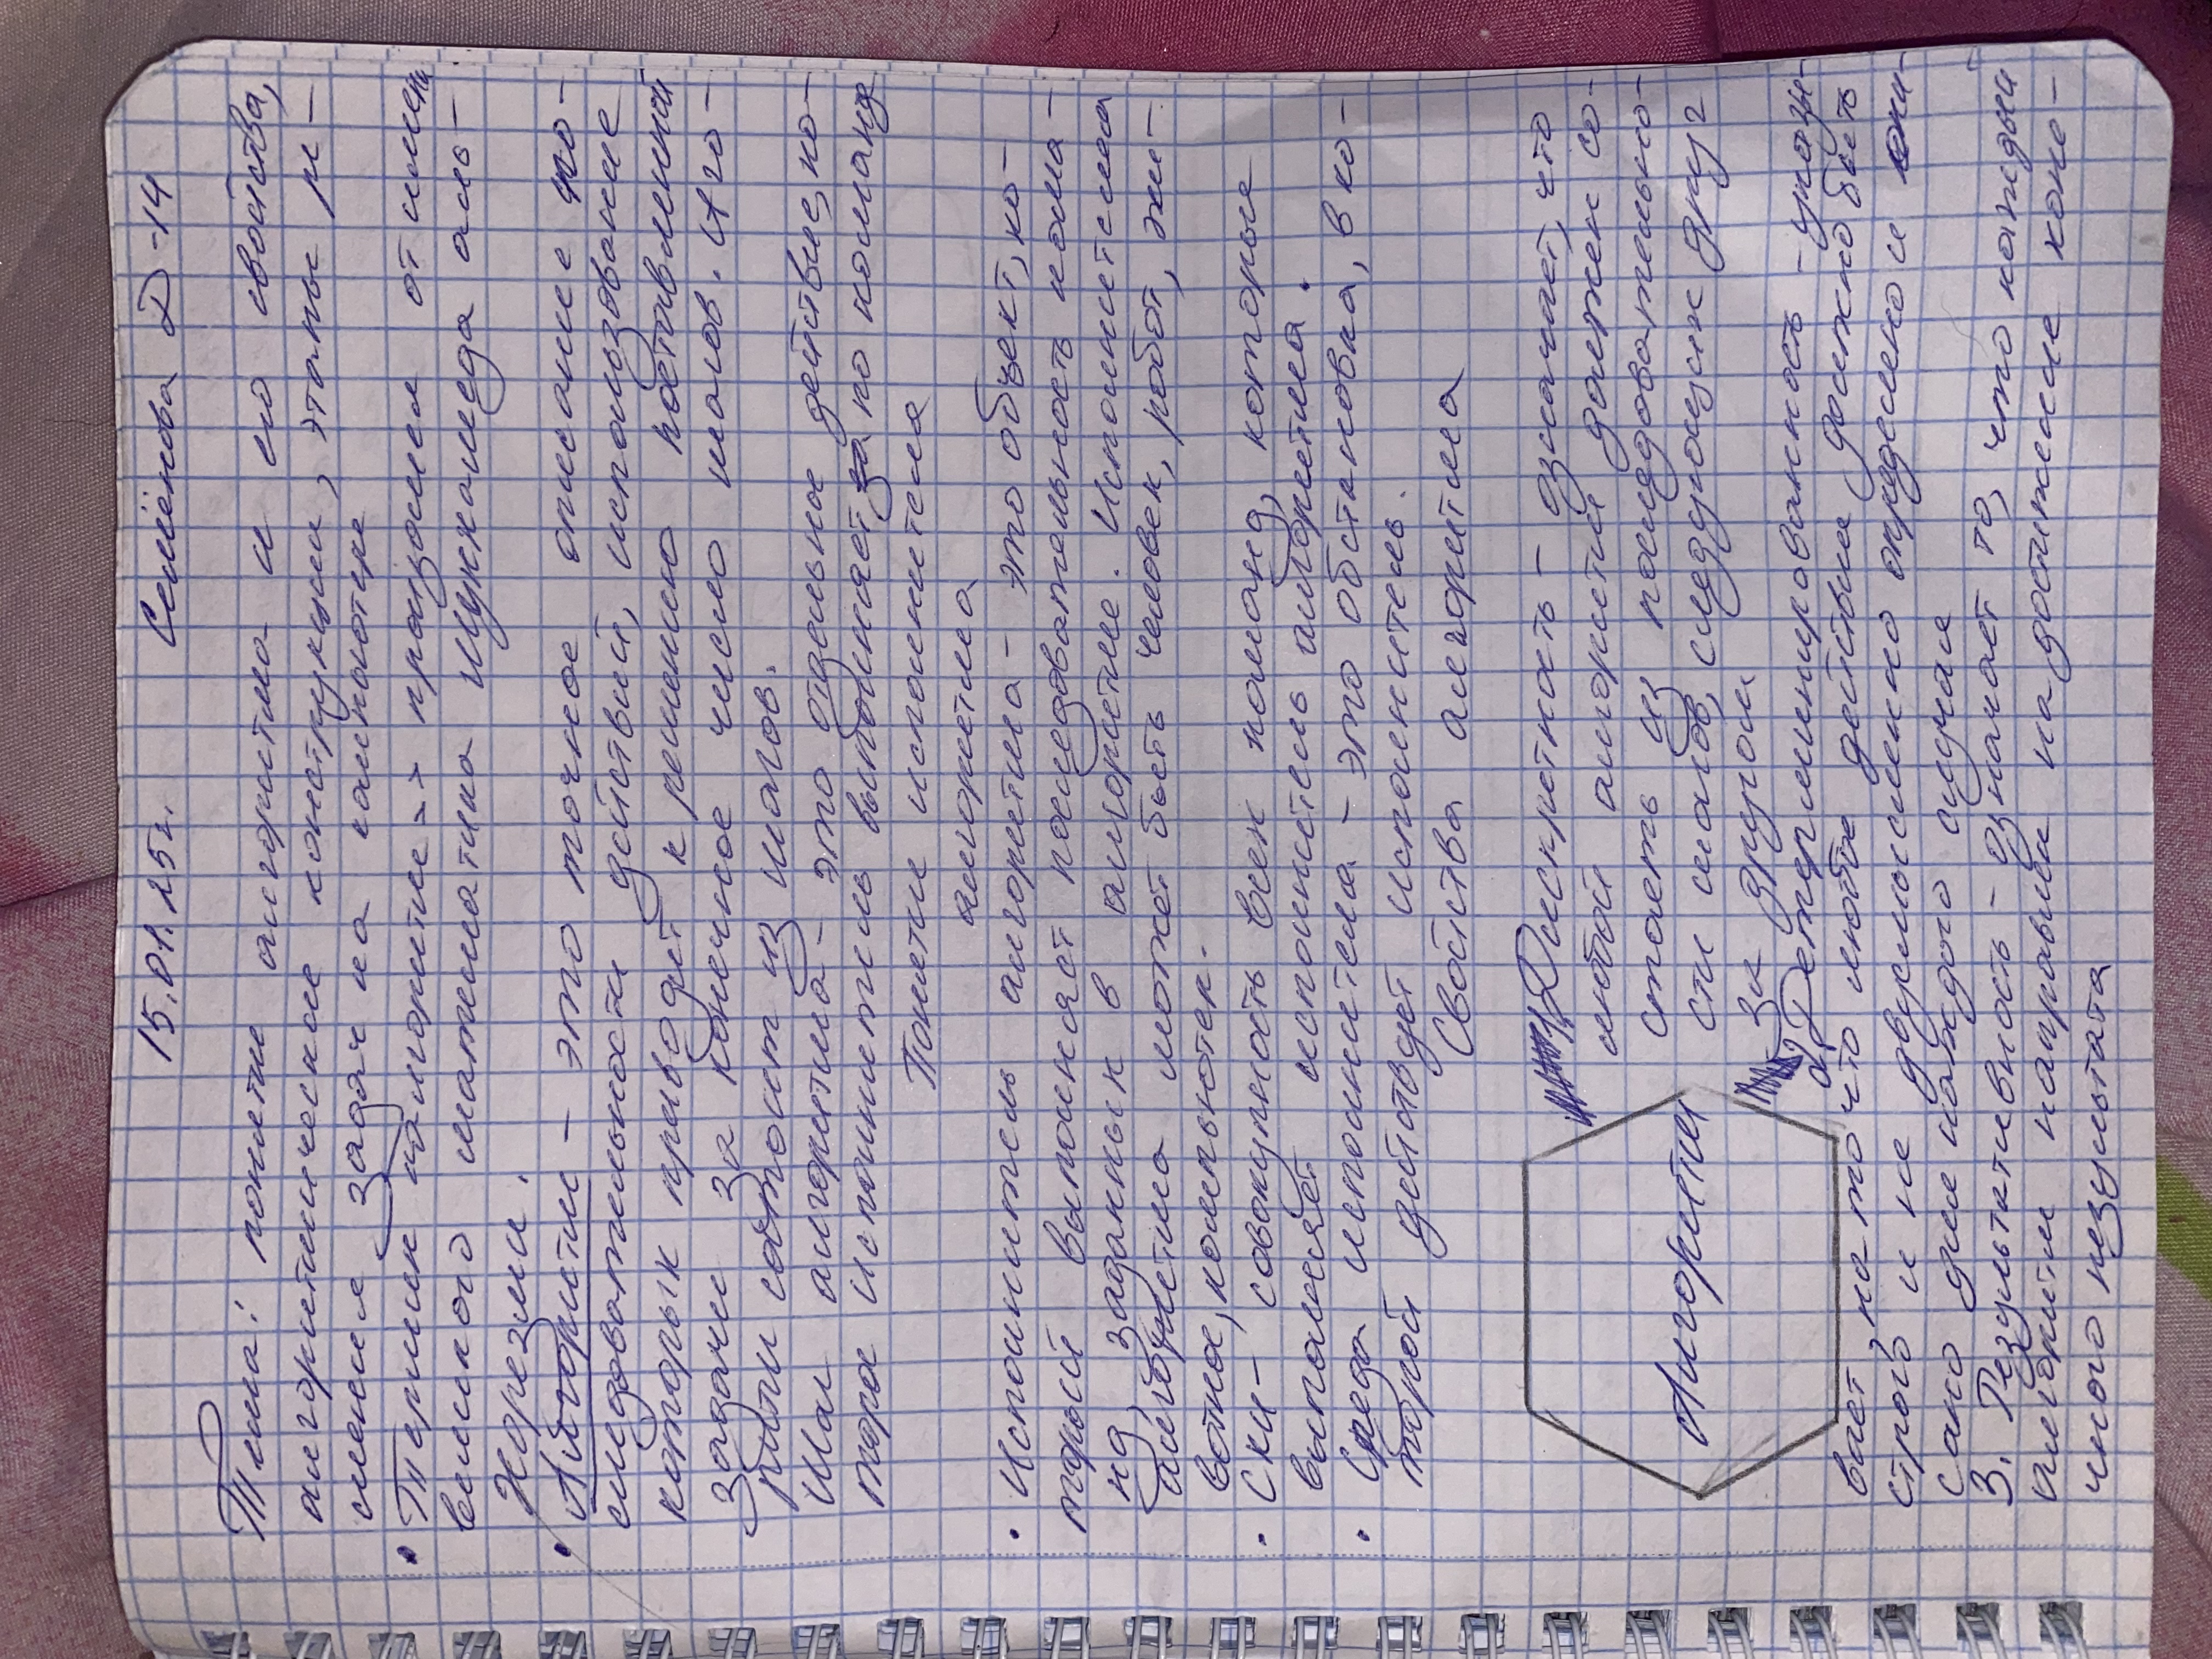 15.01.25г. Семёнова Д-14
Тема: понятие алгоритма и его свойства,
алгоритмические конструкции, этапы ре-
шения задач на компьютере
• Термин «алгоритм» произошел от имени
великого математика Мухаммеда аль-
Хорезми.
• Алгоритм - это точное описание по-
следовательности действий, использование
которых приводит к решению поставленной
задачи за конечное число шагов. Алго-
ритм состоит из шагов.
Шаг алгоритма - это отдельное действие, ко-
торое исполнитель выполняет по команде
Понятие исполнителя
алгоритма
• Исполнитель алгоритма - это объект, ко-
торый выполняет последовательность кома-
нд заданных в алгоритме. Исполнителем
алгоритма может быть человек, робот, жи-
вотное, компьютер.
• СКИ - совокупность всех команд, которые
выполняет исполнитель алгоритма.
• Среда исполнителя - это обстановка, в ко-
торой действует исполнитель.
Свойства алгоритма
1) Дискретность - означает, что
любой алгоритм должен со-
стоять из последовательно-
сти шагов, следующих друг
за другом
Алгоритм
2) Детерминированность - указы-
вает на то что любое действие должно быть
строго и не двусмысленно определено и опи-
сано для каждого случае
3. Результативность - означает то, что каждый
алгоритм направлен на достижение коне-
чного результата